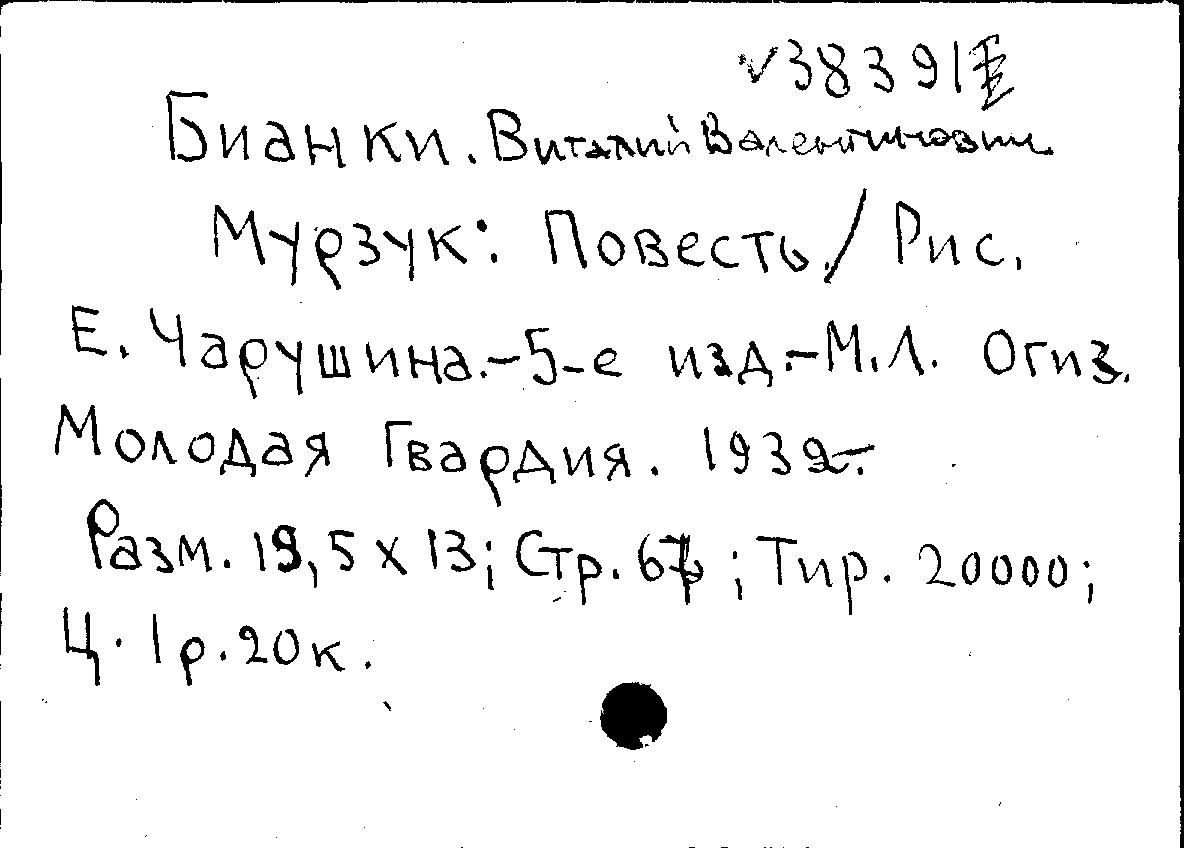 √38391
Бианки. Виталий Валентинович
Мурзук: Повесть./ Рис.
Е. Чарушина.-5-е изд.-М.Л. Огиз.
Молодая Гвардия. 1932.-
Разм. 19,5 х 13; Стр. 67; Тир. 20000;
Ц. 1р.20к.